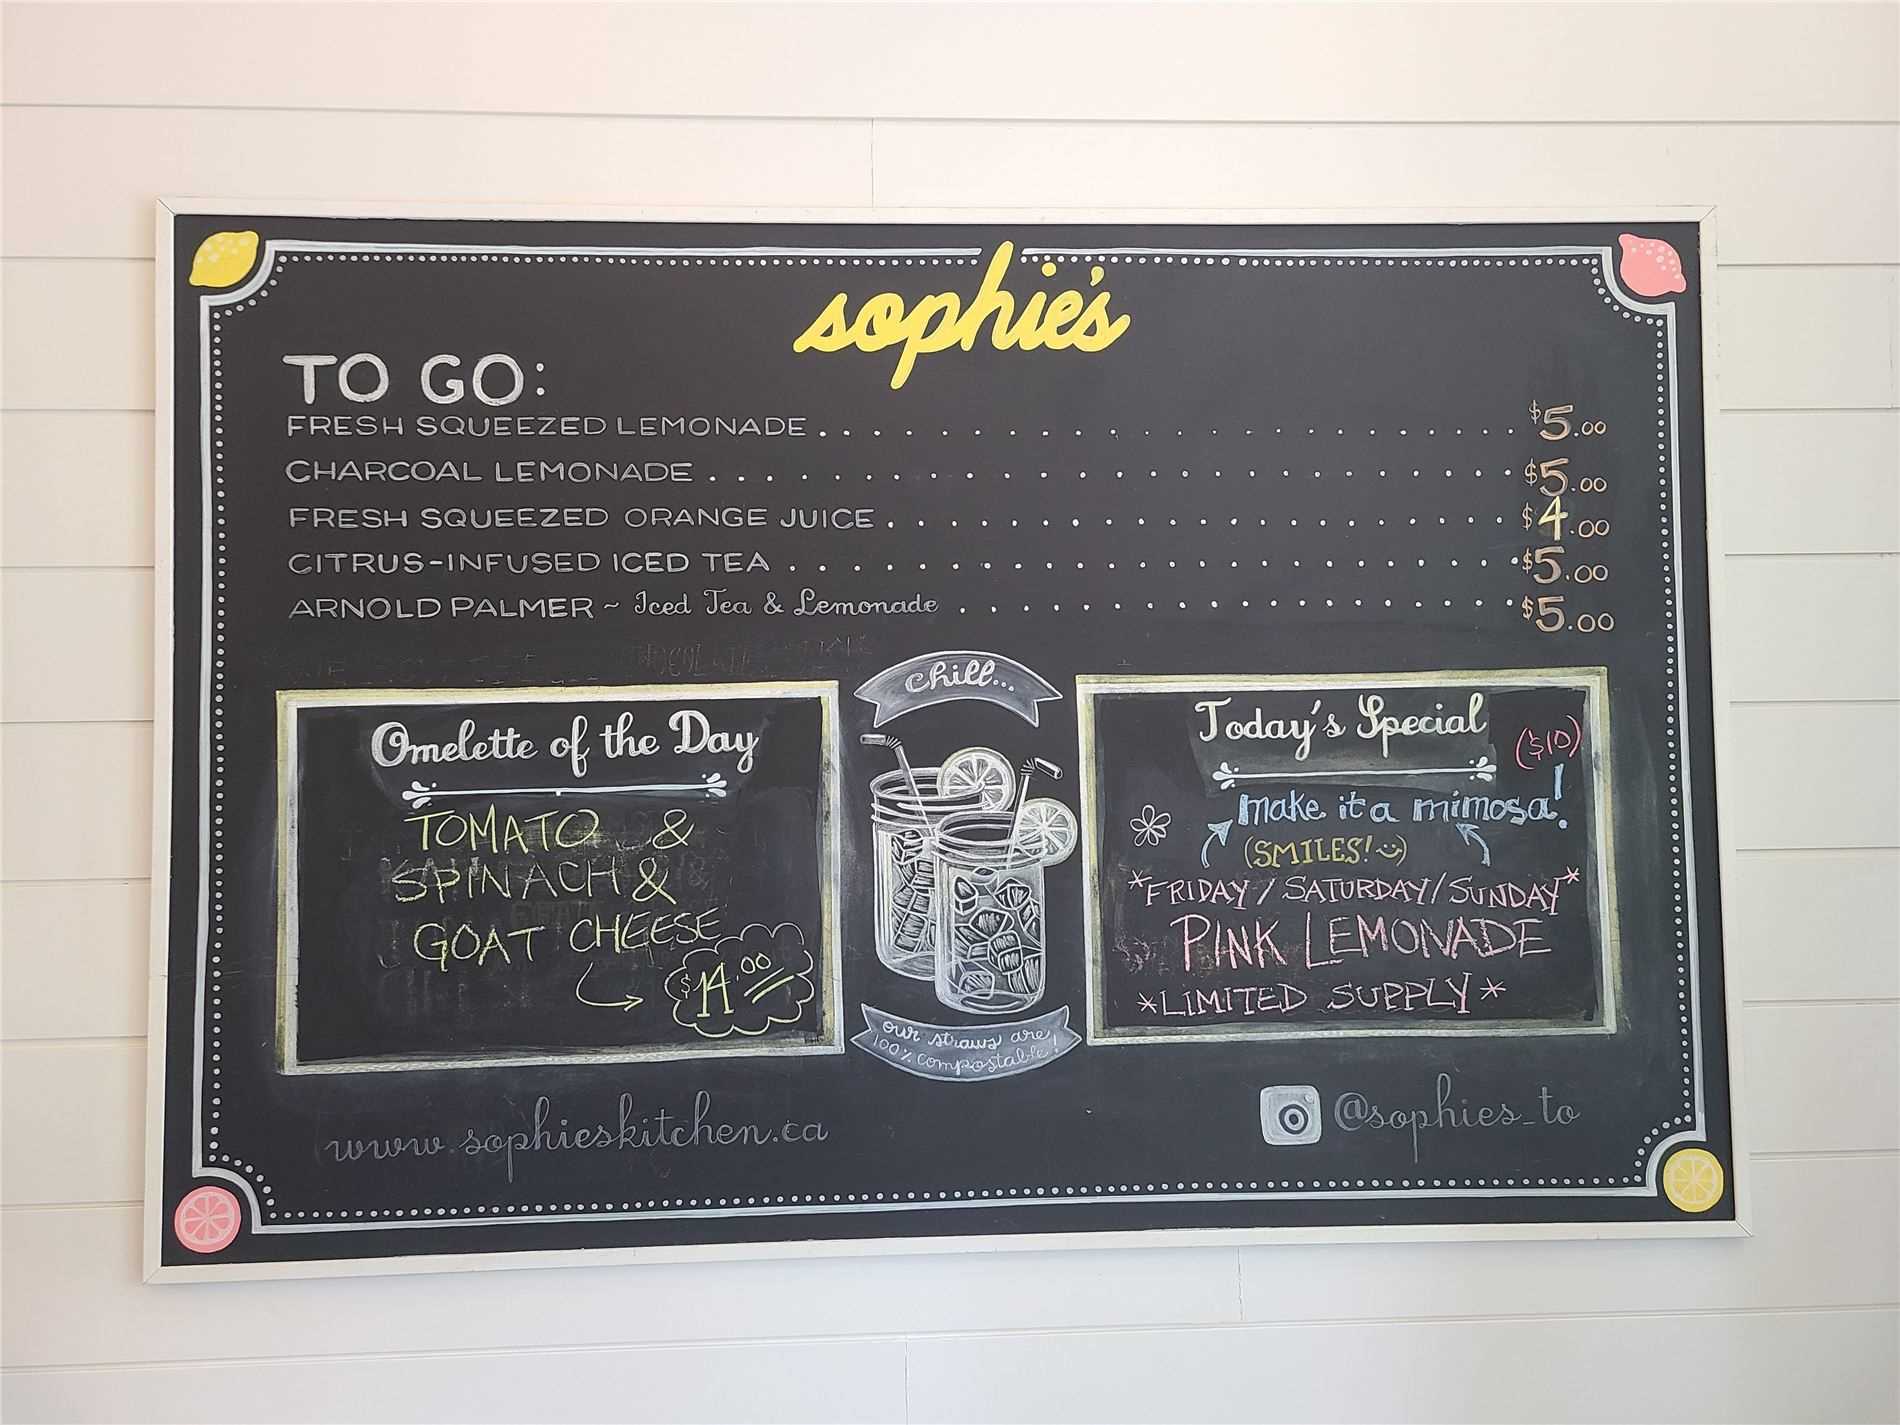 sophie's
TO GO:
FRESH SQUEEZED LEMONADE . . . . . . . . . . . . . . . . . . . . . . . . . $5.00
CHARCOAL LEMONADE . . . . . . . . . . . . . . . . . . . . . . . . . . . . . $5.00
FRESH SQUEEZED ORANGE JUICE . . . . . . . . . . . . . . . . . . . . . . $4.00
CITRUS-INFUSED ICED TEA . . . . . . . . . . . . . . . . . . . . . . . . . . $5.00
ARNOLD PALMER ~ Iced Tea & Lemonade . . . . . . . . . . . . . . . . . . . $5.00
Omelette of the Day
TOMATO &
SPINACH &
GOAT CHEESE
$14.00
chill...
our straws are
100% compostable!
Today's Special
($10)
make it a mimosa!
(SMILES! :-))
*FRIDAY / SATURDAY / SUNDAY*
PINK LEMONADE
*LIMITED SUPPLY*
www.sophieskitchen.ca
@sophies_to